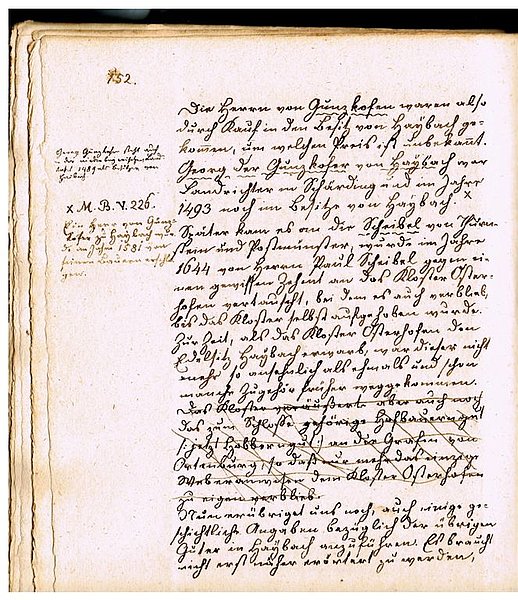 152.
Die Herrn von Gunzkofen waren also
durch Kauf in den Besitz von Haybach ge-
kommen, um welchen Preis ist unbekannt.
Georg der Gunzkofer von Haybach war
Landrichter in Schärding und im Jahre
1493 noch im Besitze von Haybach. x
Später kam es an die Scheibel von Thurn-
stein und Postmünster, wurde im Jahre
1644 von Herrn Paul Scheibel gegen ei-
nen gewissen Zehent an das Kloster Oster-
hofen vertauscht, bei dem es auch verblieb,
bis das Kloster selbst aufgehoben wurde.
Zur Zeit, als das Kloster Osterhofen den
Edelsitz Haybach erwarb, war dieser nicht
mehr so ansehnlich als ehmals und schon
manche Zugehör früher weggekommen.
Das Kloster veräußerte aber auch noch
das zum Schlosse gehörige Hofbauerngut
/: jetzt :/ an die Grafen von
Ortenburg, so daß nur mehr das einzige
Weberanwesen dem Kloster Osterhofen
zu eigen verblieb.
Nun erübriget uns noch, auch einige ge-
schichtliche Angaben bezüglich der übrigen
Güter in Haybach anzuführen. Es braucht
nicht erst näher erörtert zu werden,
Georg Gunzkofer
1489 als Besitzer von
Haibach
x M. B. V. 226.
Ein Herr von Gunz-
kofen zu Haybach wur-
de im Jahre 1581 von
seinen Bauern erschla-
gen.